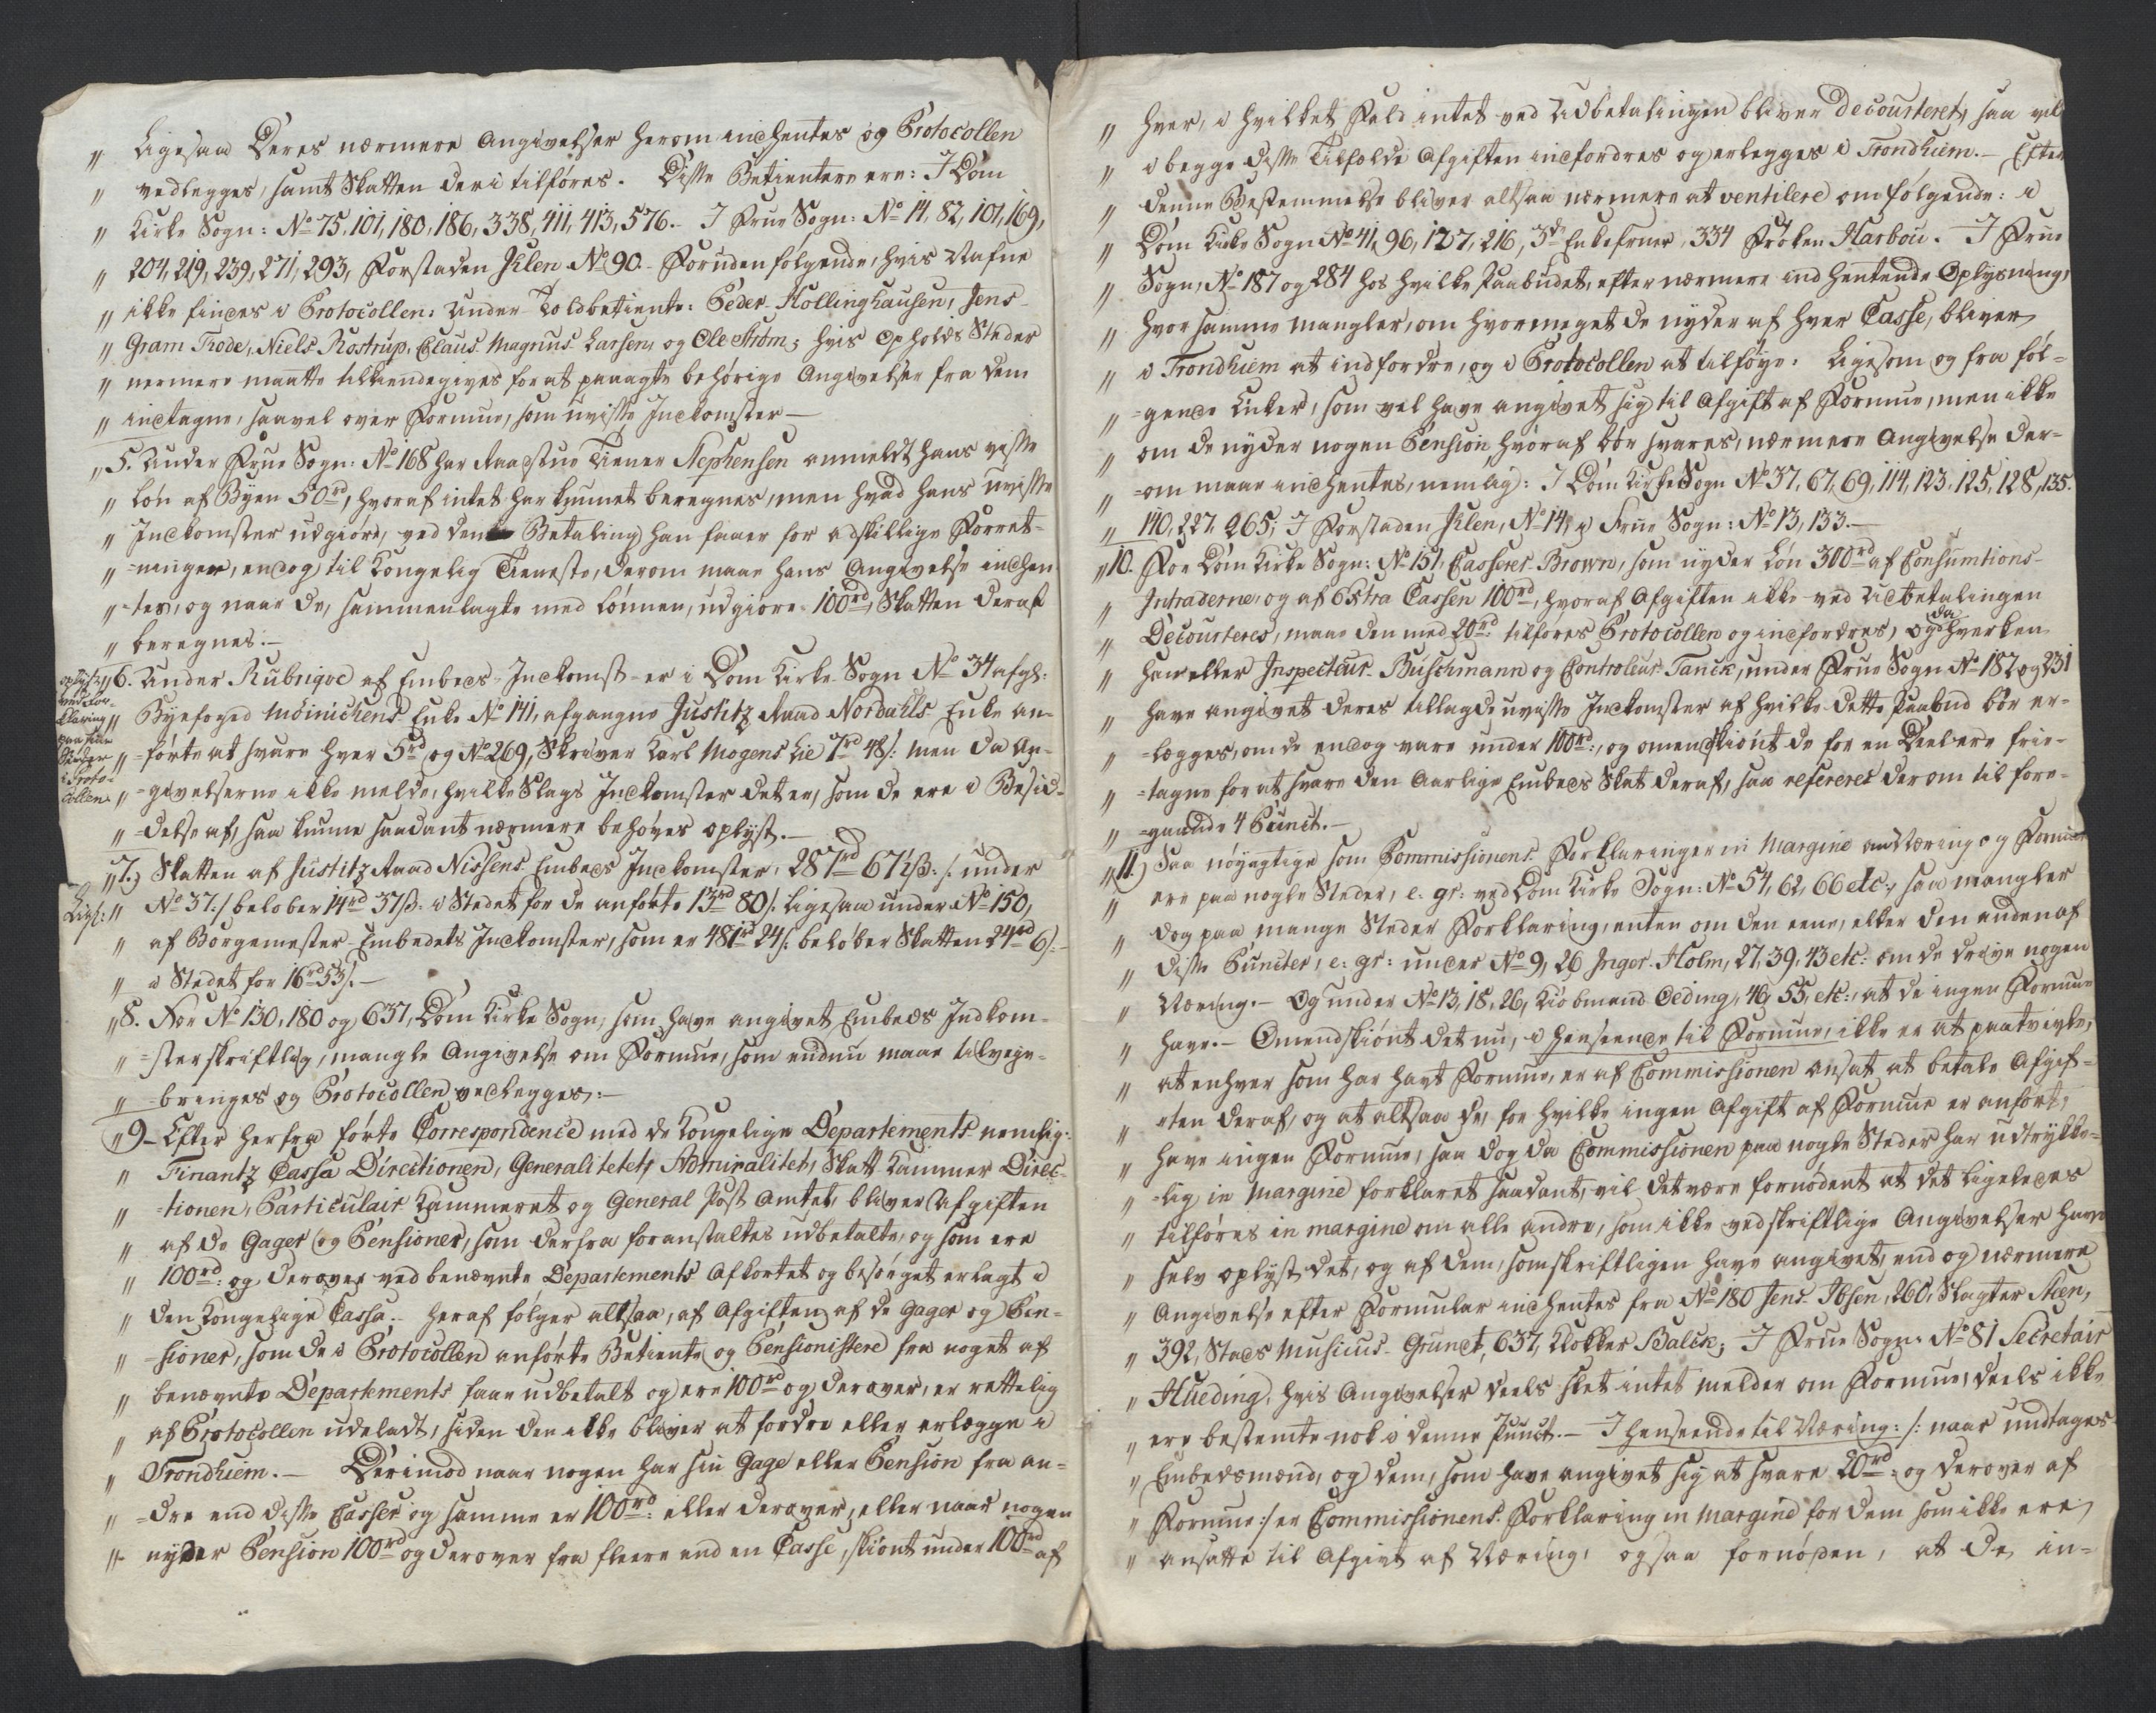 " Ligesaa Deres nærmere Angivelser herom indhentes og Protocollen
" vedlegges, samt Skatten deri tilføres. Disse Betientere ere: I Dom
" Kirke Sogn: No 75, 101, 180, 186, 338, 411, 413, 576. I Frue Sogn: No 14, 82, 101, 169,
" 204, 219, 239, 271, 293, Forstaden Jhlen No 90. Foruden følgende, hvis Nafne
" ikke findes i Protocollen: Under Toldbetiente: Peder Hollinghausen, Jens
" Gram Trode, Niels Rostrup, Claus Magnus Larsen, og Ole Strøm; hvis Opholds Steder
" nermere maatte tilkiendegives for at paaagte behørige Angivelser fra dem
" indtagne, saavel over Formue, som uvisse Indkomster —
" 5. Under Frue Sogn: No 168 har Raadstue Tiener Stephensen anmeldt hans visse
" Løn af Byen 50rd, hvoraf intet har kunnet beregnes, men hvad hans uvisse
" Indkomster udgiøre, ved den Betaling han faaer for adskillige Forret-
" =ninger, endog til Kongelig Tieneste, derom maae hans Angivelse indhen
" =tes, og naar de, sammenlagte med Lønnen, udgiøre 100rd, Skatten deraf
" beregnes. —
oplyst ved For-
klaring
paa sine
Steder
i Proto-
collen.
" 6. Under Rubriqve af Embeds-Indkomst er i Dom Kirke Sogn No 34 afgl:
" Byefoged Møinichens Enke No 141, afgangne Justitz Raad Nordahls Enke an-
" =førte at svare hver 5rd og No 269, Skriver Karl Mogens Lie 7rd 48/: men da An-
" =givelserne ikke melde, hvilke Slags Indkomster det er, som de ere i Besid-
" =delse af, saa kunne saadant nærmere behøves oplyst. —
" 7.) Skatten af Justitz Raad Nissens Embeds Indkomster, 287rd 67½ß: /: under
Ligl: " No 37:/ beløber 14rd 37ß: i Stedet for de anførte 13rd 80/. Ligesaa under No 150,
" af Borgemester Embedets Indkomster, som er 481rd 24/: beløber Skatten 24rd 6/: -
" i Stedet for 16rd 53/. —
" 8. For No 130, 180 og 637, Dom Kirke Sogn, som have angivet Embeds Indkom-
" =ster skriftlig, mangle Angivelse om Formue, som endnu maae tilveje-
" =bringes og Protocollen vedlegges: —
" 9 - Efter herfra førte Correspondence med de Kongelige Departements nemlig:
" Finantz Cassa Directionen, Generalitetet, Admiralitet, Skatt Kammer Direc-
" =tionen, Particulair Kammeret og General Post Amtet, bliver Afgiften
" af de Gager og Pensioner, som derfra foranstaltes udbetalte, og som ere
" 100rd: og derover ved benævnte Departements afkortet og besørget erlagt i
" den Kongelige Cassa. Heraf følger altsaa, af Afgiften af de Gager og Pen-
" =sioner, som de i Protocollen anførte Betiente og Pensionistere fra noget af
" benævnte Departements faae udbetalt og ere 100rd og derover, er rettelig
" af Protocollen udeladt, siden den ikke bliver at fordre eller erlægge i
" Trondhiem. — Derimod naar nogen har sin Gage eller Pension fra an-
" =dre end disse Casser og samme er 100rd: eller derover, eller naar nogen
" nyder Pension 100rd og derover fra fleere end en Casse, skiønt under 100rd af
" hver, i hvilket Fald intet ved Udbetalingen bliver decourteret, saa vil
" i begge disse Tilfælde Afgiften indfordres og erlegges i Trondhiem. — Efter
" denne Bestemmelse bliver altsaa nærmere at ventilere om følgende: i
" Dom Kirke Sogn No 41, 96, 127, 216, 3de Enkefruer, 334 Frøken Harbou. I Frue
" Sogn, No 187 og 284 hos hvilke Paabudet, efter nærmere indhentende Oplysning,
" hvor samme mangler, om hvormeget de nyder af hver Casse, bliver
" i Trondhiem at indfordre, og i Protocollen at tilføye. Ligesom og fra føl-
" =gende Enker, som vel have angivet sig til Afgift af Formue, men ikke
" om de nyder nogen Pension, hvoraf bør svares, nærmere Angivelse der-
" =om maae indhentes, nemlig: I Dom Kirke Sogn No 37, 67, 69, 114, 123, 125, 128, 135.
" 140, 227, 265; I Forstaden Jhlen, No 14, i Frue Sogn: No 13, 133. —
" 10. For Dom Kirke Sogn: No 151, Casserer Brown, som nyder Løn 300rd af Consumtions-
" Intraderne, og af Extra Cassen 100rd, hvoraf Afgiften ikke ved Udbetalingen
" Decourteres, maae den med 20rd: tilføres Protocollen og indfordres, og da hverken
" han eller Inspecteur Buschmann og Controleur Tanck, under Frue Sogn No 182 og 231
" have angivet deres tillagde uvisse Indkomster af hvilke dette Paabud bør er-
" =lægges, om de endog vare under 100rd:, og omendskiønt de for en Deel ere frie-
" =tagne for at svare den Aarlige Embeds Skat deraf, saa refereres derom til fore-
" =gaaende 4 Punct. —
" 11.) Saa nøyagtige som Commissionens Forklaringer in Margine om Næring og Formue
" ere paa nogle Steder, e: gr: ved Dom Kirke Sogn: No 54, 62, 66 etc:, saa mangler
" dog paa mange Steder Forklaring, enten om den eene, eller den anden af
" disse Puncter, e: gr: under No 9, 26 Inger Holm, 27, 39, 43 etc: om de drive nogen
" Næring. — Og under No 13, 18, 26, Kiøbmand Oeding, 46, 55, etc:, at de ingen Formue
" have. — Omendskiønt det nu, i Henseende til Formue, ikke er at paatvivle,
" at enhver som har havt Formue, er af Commissionen ansat at betale Afgif-
" =ten deraf, og at altsaa de, for hvilke ingen Afgift af Formue er anført,
" have ingen Formue, saa dog da Commissionen paa nogle Steder har udtrykke-
" =lig in Margine forklaret saadant, vil det være fornødent at det ligeledes
" tilføres in margine om alle andre, som ikke ved skriftlige Angivelser have
" selv oplyst det, og af dem, som skriftligen have angivet, endog nærmere
" Angivelse efter Formular indhentes fra No 180 Jens Ibsen, 260, Slagter Steen,
" 392, Stads Musicus Grundt, 637, Klokker Balck; I Frue Sogn: No 81 Secretair
" Hueding, hvis Angivelser deels slet intet melder om Formue, deels ikke
" ere bestemte nok i denne Punct. — I Henseende til Næring: /: naar undtages
" Embedsmænd, og dem, som have angivet sig at svare 20rd: og derover af
" Formue:/ er Commissionens Forklaring in margine for dem som ikke ere
" ansatte til Afgivt af Næring, ogsaa fornøden, at de in-